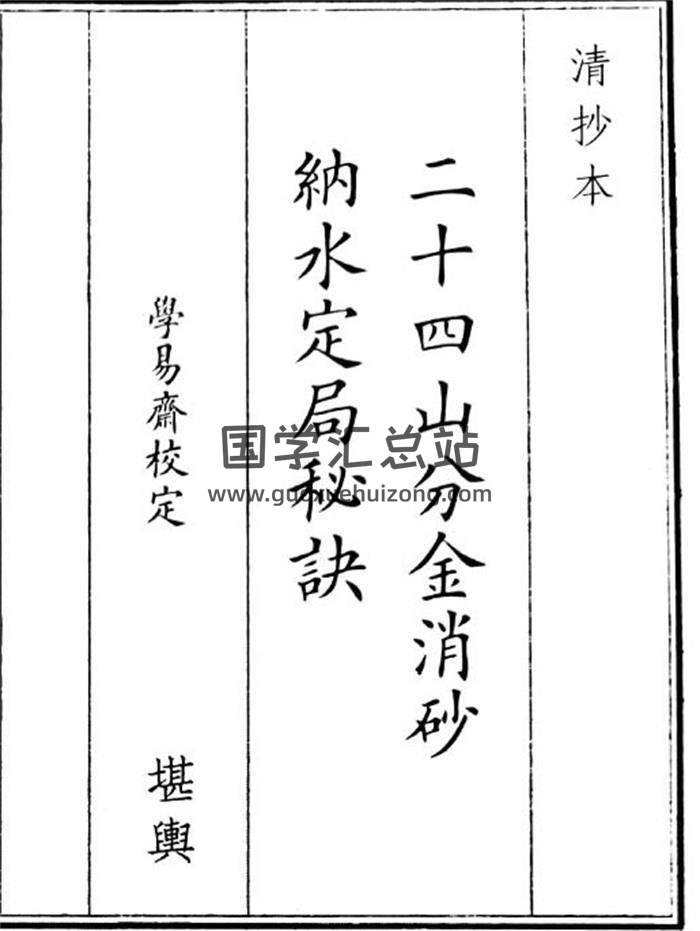 清抄本
二十四山分金消砂
納水定局秘訣
學易齋校定
堪輿
国学汇总站
www.guoxuehuizong.com